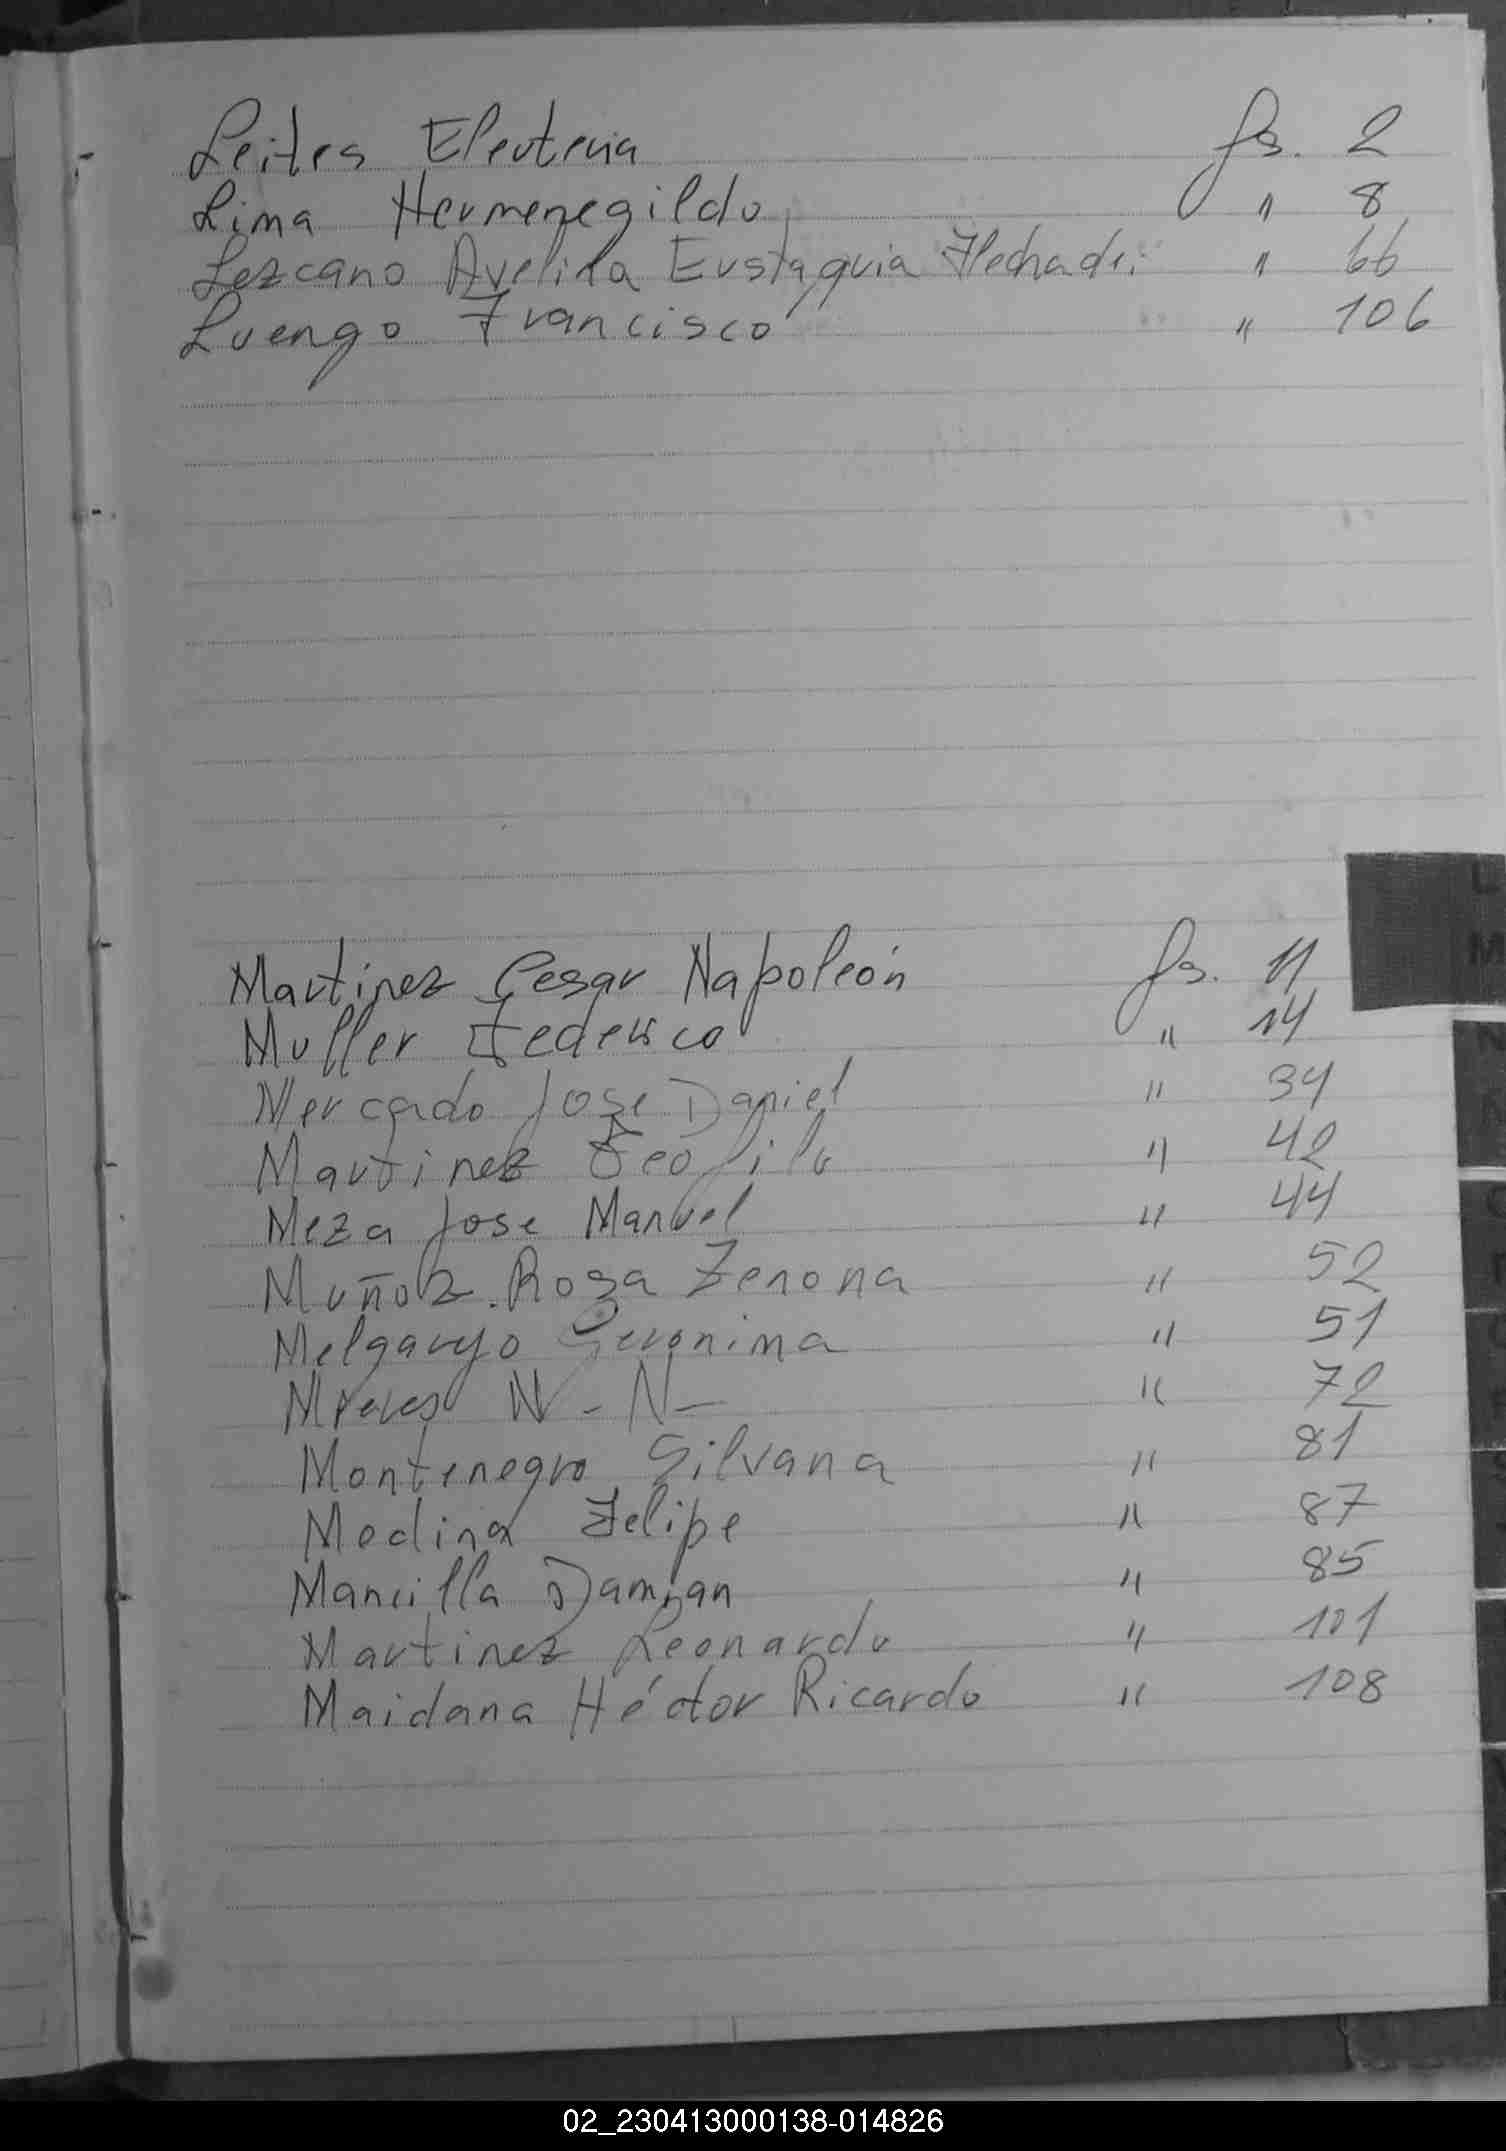 Leites Eleuteria fs. 2
Lima Hermenegildo " 8
Lezcano Avelina Eustaquia Flecha de: " 66
Luengo Francisco " 106
L
M
Martinez Cesar Napoleón fs. 11
Muller Federico " 14
Mercado Jose Daniel " 34
Martinez Teofilo " 42
Meza Jose Manuel " 44
Muñoz Rosa Zenona " 52
Melgarejo Geronima " 51
N - N - " 72
Montenegro Silvana " 81
Medina Felipe " 87
Mancilla Damian " 85
Martinez Leonardo " 101
Maidana Héctor Ricardo " 108
02_230413000138-014826